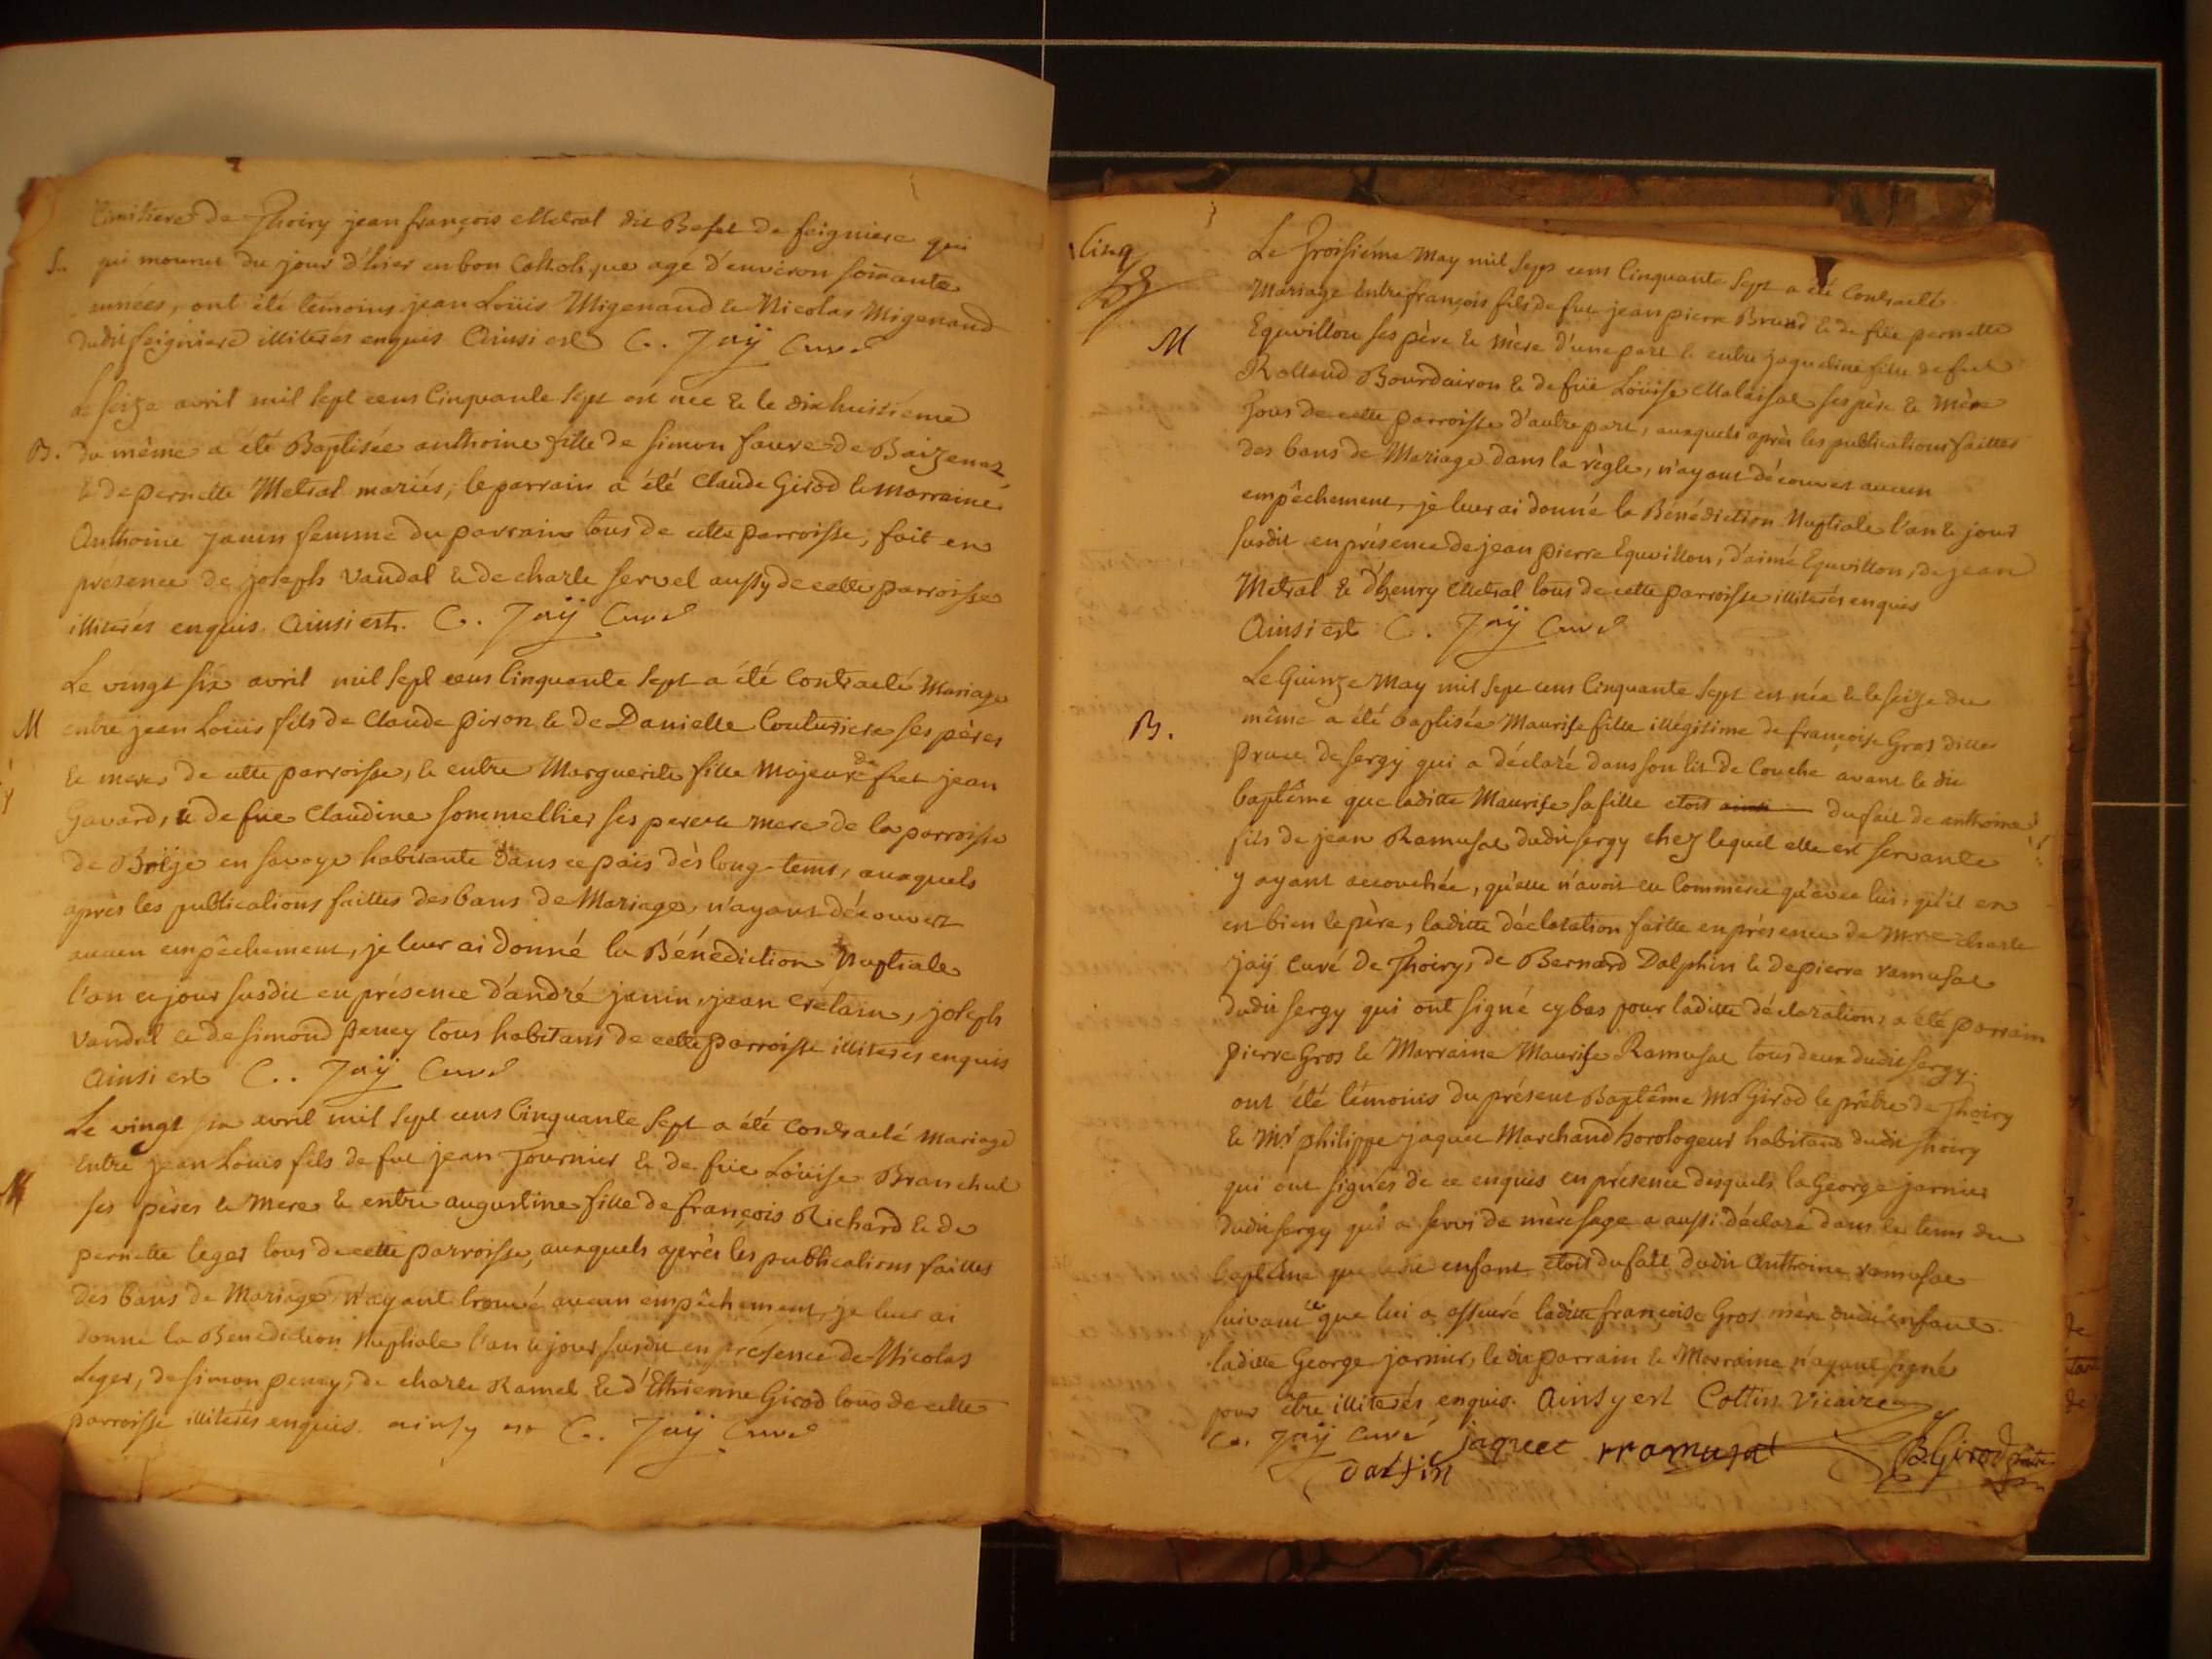 Cimitiere de Thoiry jean françois Metral dit Befet de feigniere qui
S. qui mourut du jour d'hier en bon Catholique agé d'environ soixante
années, ont été témoins jean Loüis Migenand & Nicolas Migenand
dudit feigniere illiterés enquis Ainsi est C. Jaÿ Curé
Le seize avril mil sept cens Cinquante sept est née & le dixhuitiéme
B. du même a été Baptisée anthoine fille de simon fauve de Baizenaz
& de pernette Metral mariés; le parrain a été Claude Girod & Marraine
Anthoine Janin femme du parrain tous de cette parroisse, fait en
présence de joseph vandal & de charle servel aussy de cette parroisse
illiterés enquis. Ainsi est. C. Jaÿ Curé
Le vingt six avril mil sept cens Cinquante sept a été Contracté Mariage
M entre jean Loüis fils de Claude piron & de Danielle Couturiere ses pères
& mere de cette parroisse, & entre Marguerite fille Majeure de feu jean
Gavard, & de füe Claudine sommellier ses pere & mere de la parroisse
de Böije en savoye habitante dans ce païs dès long-tems, auxquels
après les publications faittes des bans de Mariage, n'ayant découvert
aucun empêchement, je leur ai donné la Bénédiction Nuptiale
l'an & jour susdit en présence d'andré janin, jean crétain, joseph
vandal & de simond peney tous habitans de cette parroisse illiterés enquis
Ainsi est C. Jaÿ Curé
Le vingt six avril mil sept cens Cinquante sept a été Contracté Mariage
M Entre jean Loüis fils de feu jean Tournier & de füe Loüise Branchut
ses pères & Mere & entre augustine fille de françois Richard & de
pernette leger tous de cette parroisse, auxquels après les publications faittes
des bans de Mariage n'ayant trouvé aucun empêchement, je leur ai
donné la Benediction Nuptiale l'an & jour susdit en présence de Nicolas
Leger, de simon peney, de charle Ramel & d'Ethienne Girod tous de cette
parroisse illiterés enquis. ainsy est C. Jaÿ Curé
Cinq
Le Troisiéme May mil sept cens Cinquante sept a été Contracté
Mariage Entre françois fils de feu jean pierre Brund & de füe pernette
M Eguvillon ses père & mère d'une part & entre jaqueline fille de feu
Rolland Bourdairon & de füe Loüise Malaisal ses père & Mère
Tous de cette parroisse d'autre part, auxquels après les publications faittes
des bans de Mariage dans la règle, n'ayant découvert aucun
empêchement, je leur ai donné la Bénédiction Nuptiale l'an & jour
susdit en présence de jean pierre Eguvillon, d'aimé Eguvillon, de jean
Metral & d'henry Metral tous de cette parroisse illiterés enquis
Ainsi est C. Jaÿ Curé
Le Quinze May mil sept cens Cinquante sept est née & le seize du
B. même a été baptisée Maurise fille illégitime de françoise Gros ditte
pruce de sergy qui a déclaré dans son lit de Couche avant le dit
baptême que laditte Maurise sa fille etoit du fait de anthoine
fils de jean Ramusat dudit sergy chez lequel elle est servante
y ayant accouchée, qu'elle n'avoit eu Commerce qu'avec lui, qu'il en
est bien le père, laditte déclaration faitte en présence de Mre charle
jaÿ Curé de Thoiry, de Bernard Dalphin & de pierre ramusat
dudit sergy qui ont signé cy bas pour laditte déclaration, a été parrain
pierre Gros & Marraine Maurise Ramusat tous deux dudit sergy.
ont été témoins du présent Baptême Mr Girod le prêtre de Thoiry
& Mr philippe jaquet Marchand horologeur habitant dudit Thoiry
qui ont signés de ce enquis en présence desquels la George jarnier
dudit sergy qui a servi de mèressage a aussi déclaré dans le tems du
baptême que ledit enfant étoit du fait dudit Anthoine ramusat
suivant ce que lui a assuré laditte françoise Gros mère dudit enfant.
laditte George jarnier, le dit parrain & Marraine n'ayant signé
pour être illiterés enquis. Ainsy est Cottin Vicaire
C. Jaÿ Curé jaquet rramusat B. Girod prêtre
dalfin